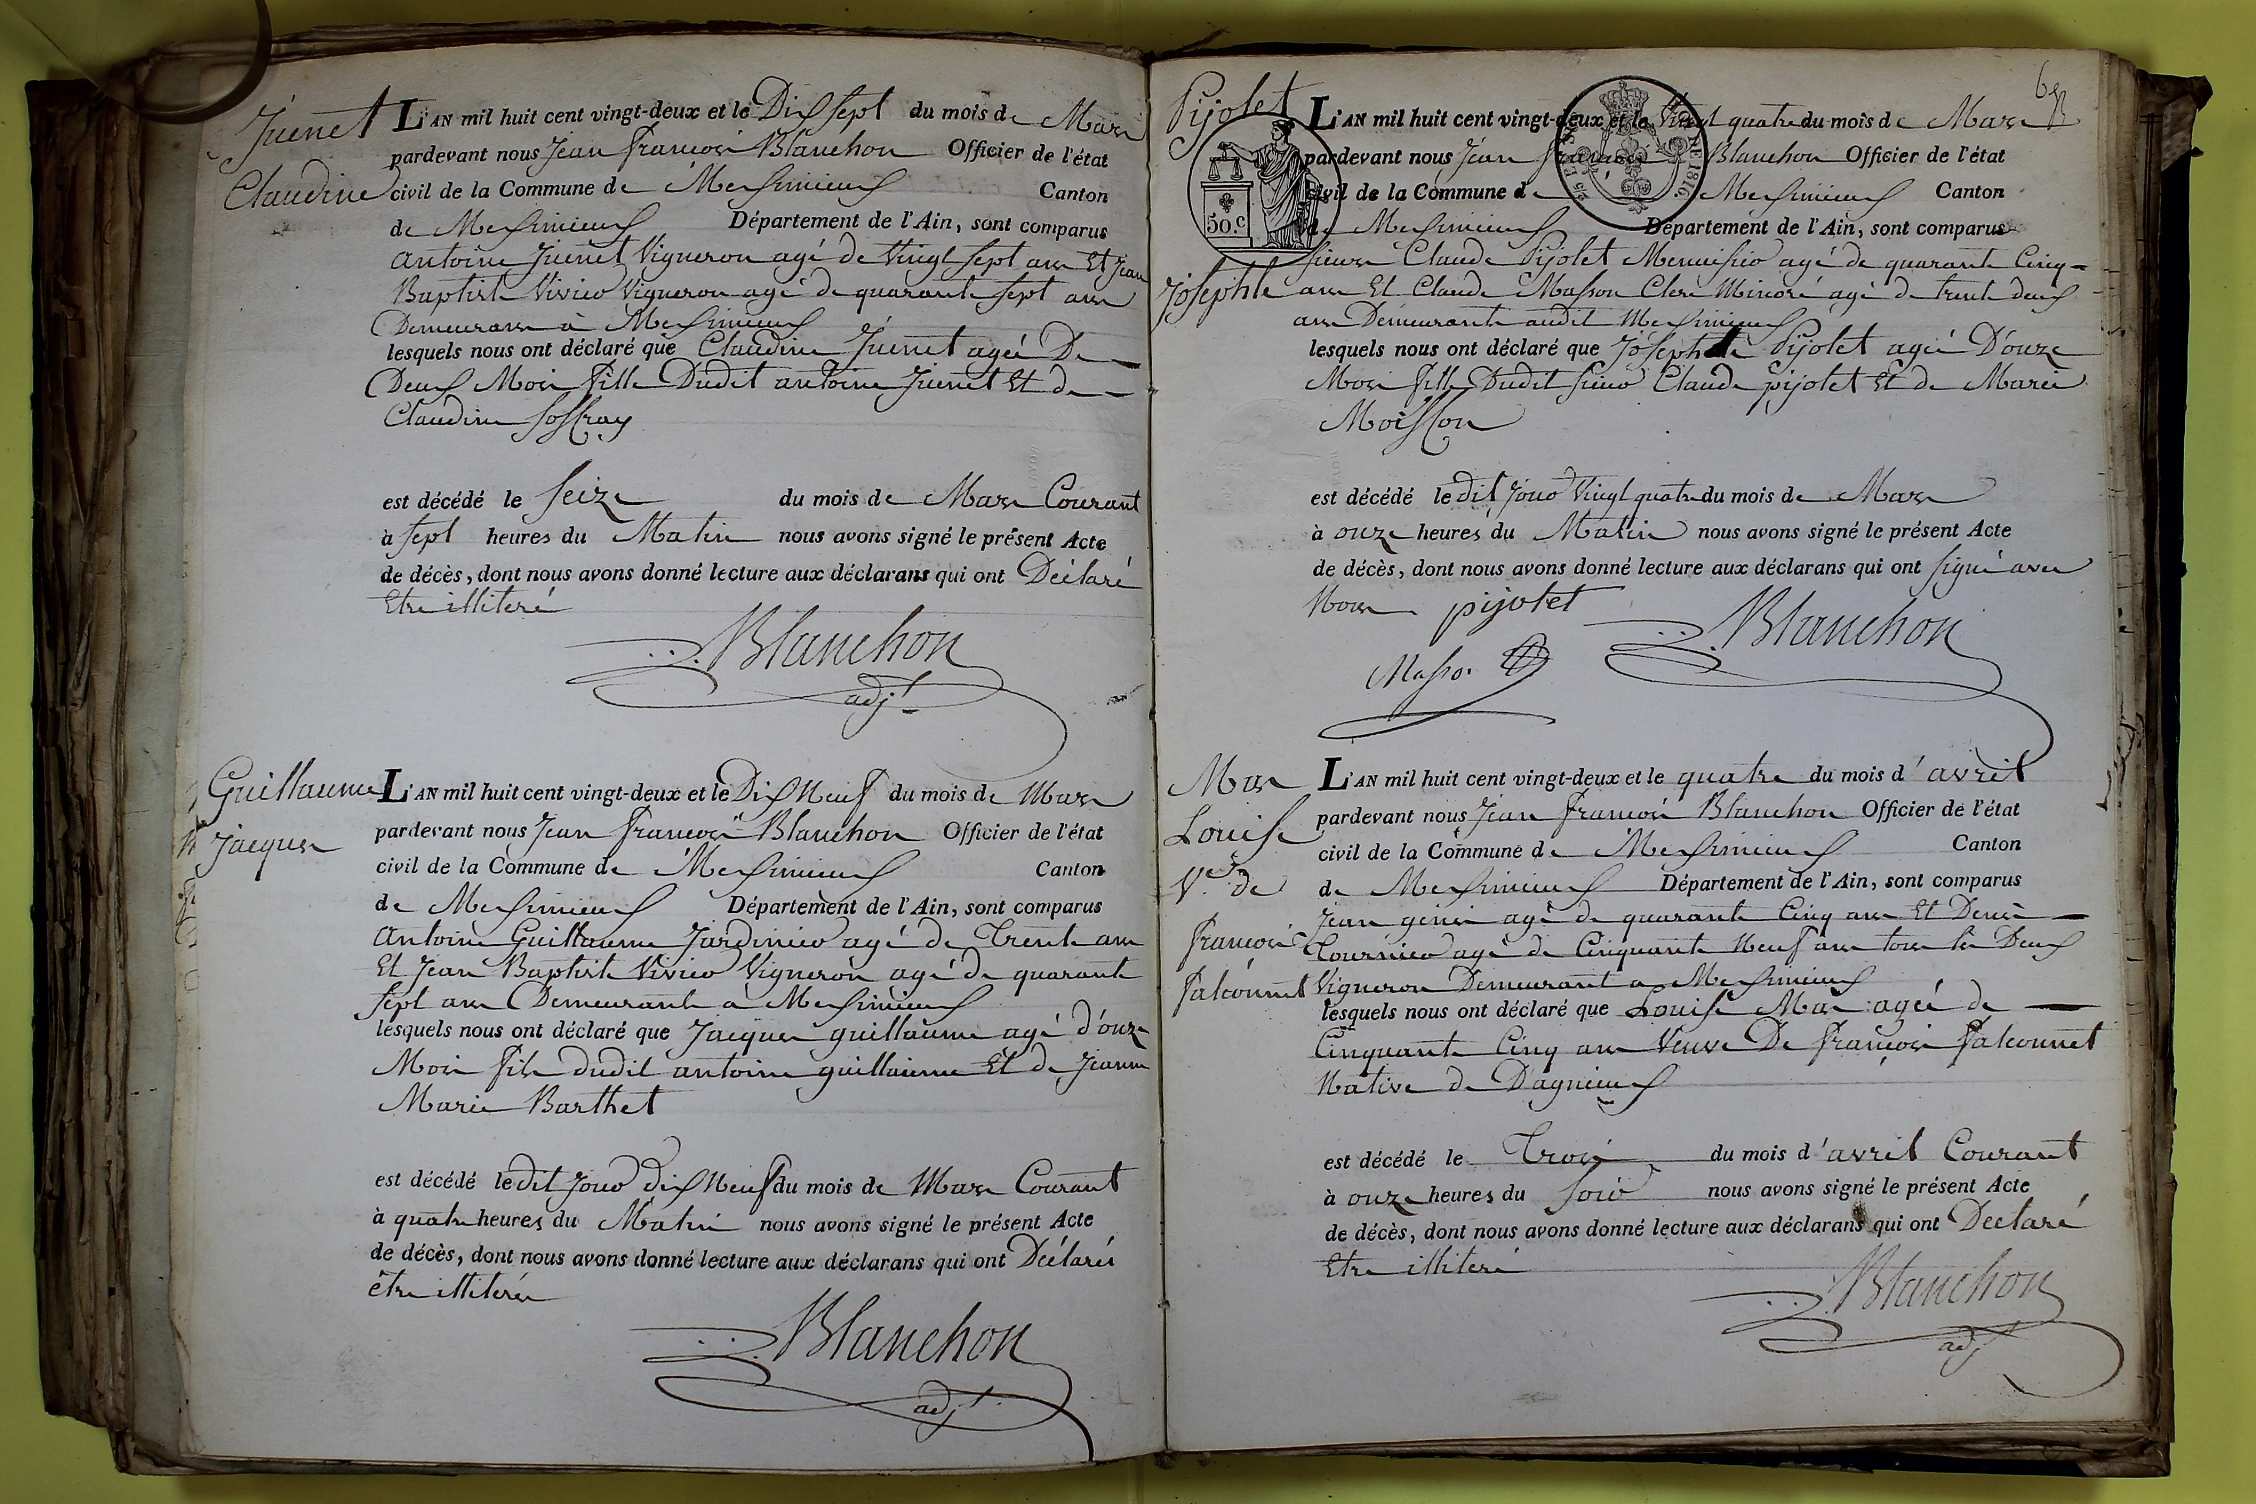 Juenet
Claudine
L'AN mil huit cent vingt-deux et le Dix sept du mois de Mars
pardevant nous Jean françois Blanchon Officier de l'état
civil de la Commune de Meximieux Canton
de Meximieux Département de l'Ain, sont comparus
antoine Juenet Vigneron agé de Vingt sept ans Et Jean
Baptiste Vivier Vigneron agé de quarante sept ans
Demeurans à Meximieux
lesquels nous ont déclaré que Claudine Juenet ageé De
Deux Mois fille Dudit antoine Juenet Et de
Claudine
est décédé le seize du mois de Mars Courant
à sept heures du Matin nous avons signé le présent Acte
de décès, dont nous avons donné lecture aux déclarans qui ont Déclaré
Etre illiteré
Blanchon
adjt
Guillaume
Jacques
L'AN mil huit cent vingt-deux et le Dix Neuf du mois de Mars
pardevant nous Jean françois Blanchon Officier de l'état
civil de la Commune de Meximieux Canton
de Meximieux Département de l'Ain, sont comparus
Antoine Guillaume Jardinier agé de Trente ans
Et Jean Baptiste Vivier Vigneron agé de quarante
sept ans Demeurants a Meximieux
lesquels nous ont déclaré que Jacques guillaume agé d'onze
Mois fils dudit antoine guillaume Et de Jeanne
Marie Barthet
est décédé le dit Jour dix Neuf du mois de Mars Courant
à quatre heures du Matin nous avons signé le présent Acte
de décès, dont nous avons donné lecture aux déclarans qui ont Déclarés
être illiterés
Blanchon
adjt
Pijolet
Josephte
50.c
L'AN mil huit cent vingt-deux et le Vingt quatre du mois de Mars
pardevant nous Jean françois Blanchon Officier de l'état
civil de la Commune de Meximieux Canton
de Meximieux Département de l'Ain, sont comparus
sieurs Claude Pijolet Menuisier agé de quarante Cinq
ans Et Claude Masson Clerc Minoré agé de trente deux
ans Demeurants audit Meximieux
lesquels nous ont déclaré que Josephte Pijolet ageé D'onze
Mois fille Dudit sieur Claude pijolet Et de Marie
Moisson
est décédé le dit Jour Vingt quatre du mois de Mars
à onze heures du Matin nous avons signé le présent Acte
de décès, dont nous avons donné lecture aux déclarans qui ont signé avec
Nous pijolet
Blanchon
Masson
Mas
Louise
Ve de
françois
falconnet
L'AN mil huit cent vingt-deux et le quatre du mois d'avril
pardevant nous Jean françois Blanchon Officier de l'état
civil de la Commune de Meximieux Canton
de Meximieux Département de l'Ain, sont comparus
Jean agé de quarante Cinq ans Et Denis
Tournier agé de Cinquante Neuf ans tous les Deux
Vigneron Demeurant a Meximieux
lesquels nous ont déclaré que Louise Mas ageé de
Cinquante Cinq ans Veuve De françois falconnet
Native de Dagnieux
est décédé le Trois du mois d'avril Courant
à onze heures du soir nous avons signé le présent Acte
de décès, dont nous avons donné lecture aux déclarans qui ont Declaré
Etre illiteré
Blanchon
adjt